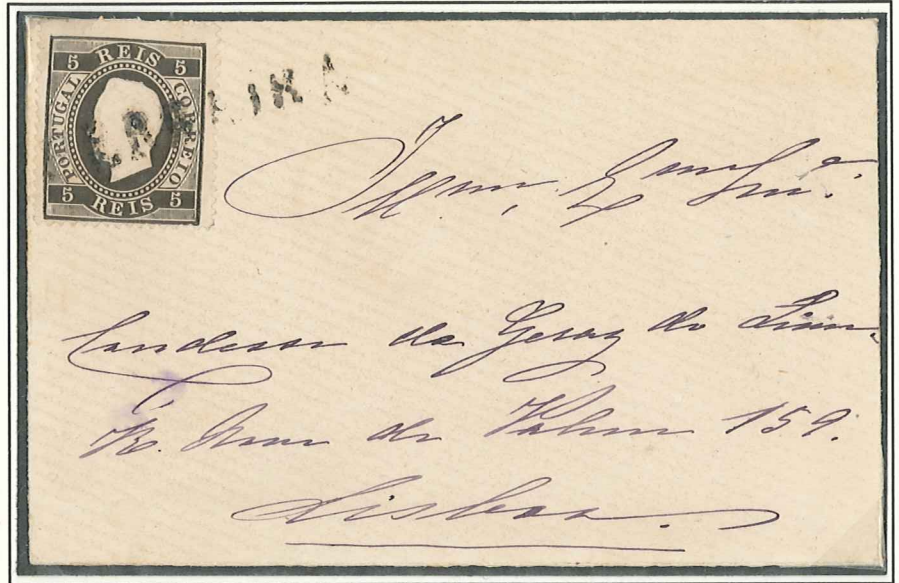 5 REIS 5
PORTUGAL CORREIO
5 REIS 5
Illma, Exma Snra
Condessa de Geraz do Lima
R. Rua da Palma 159.
Lisboa.